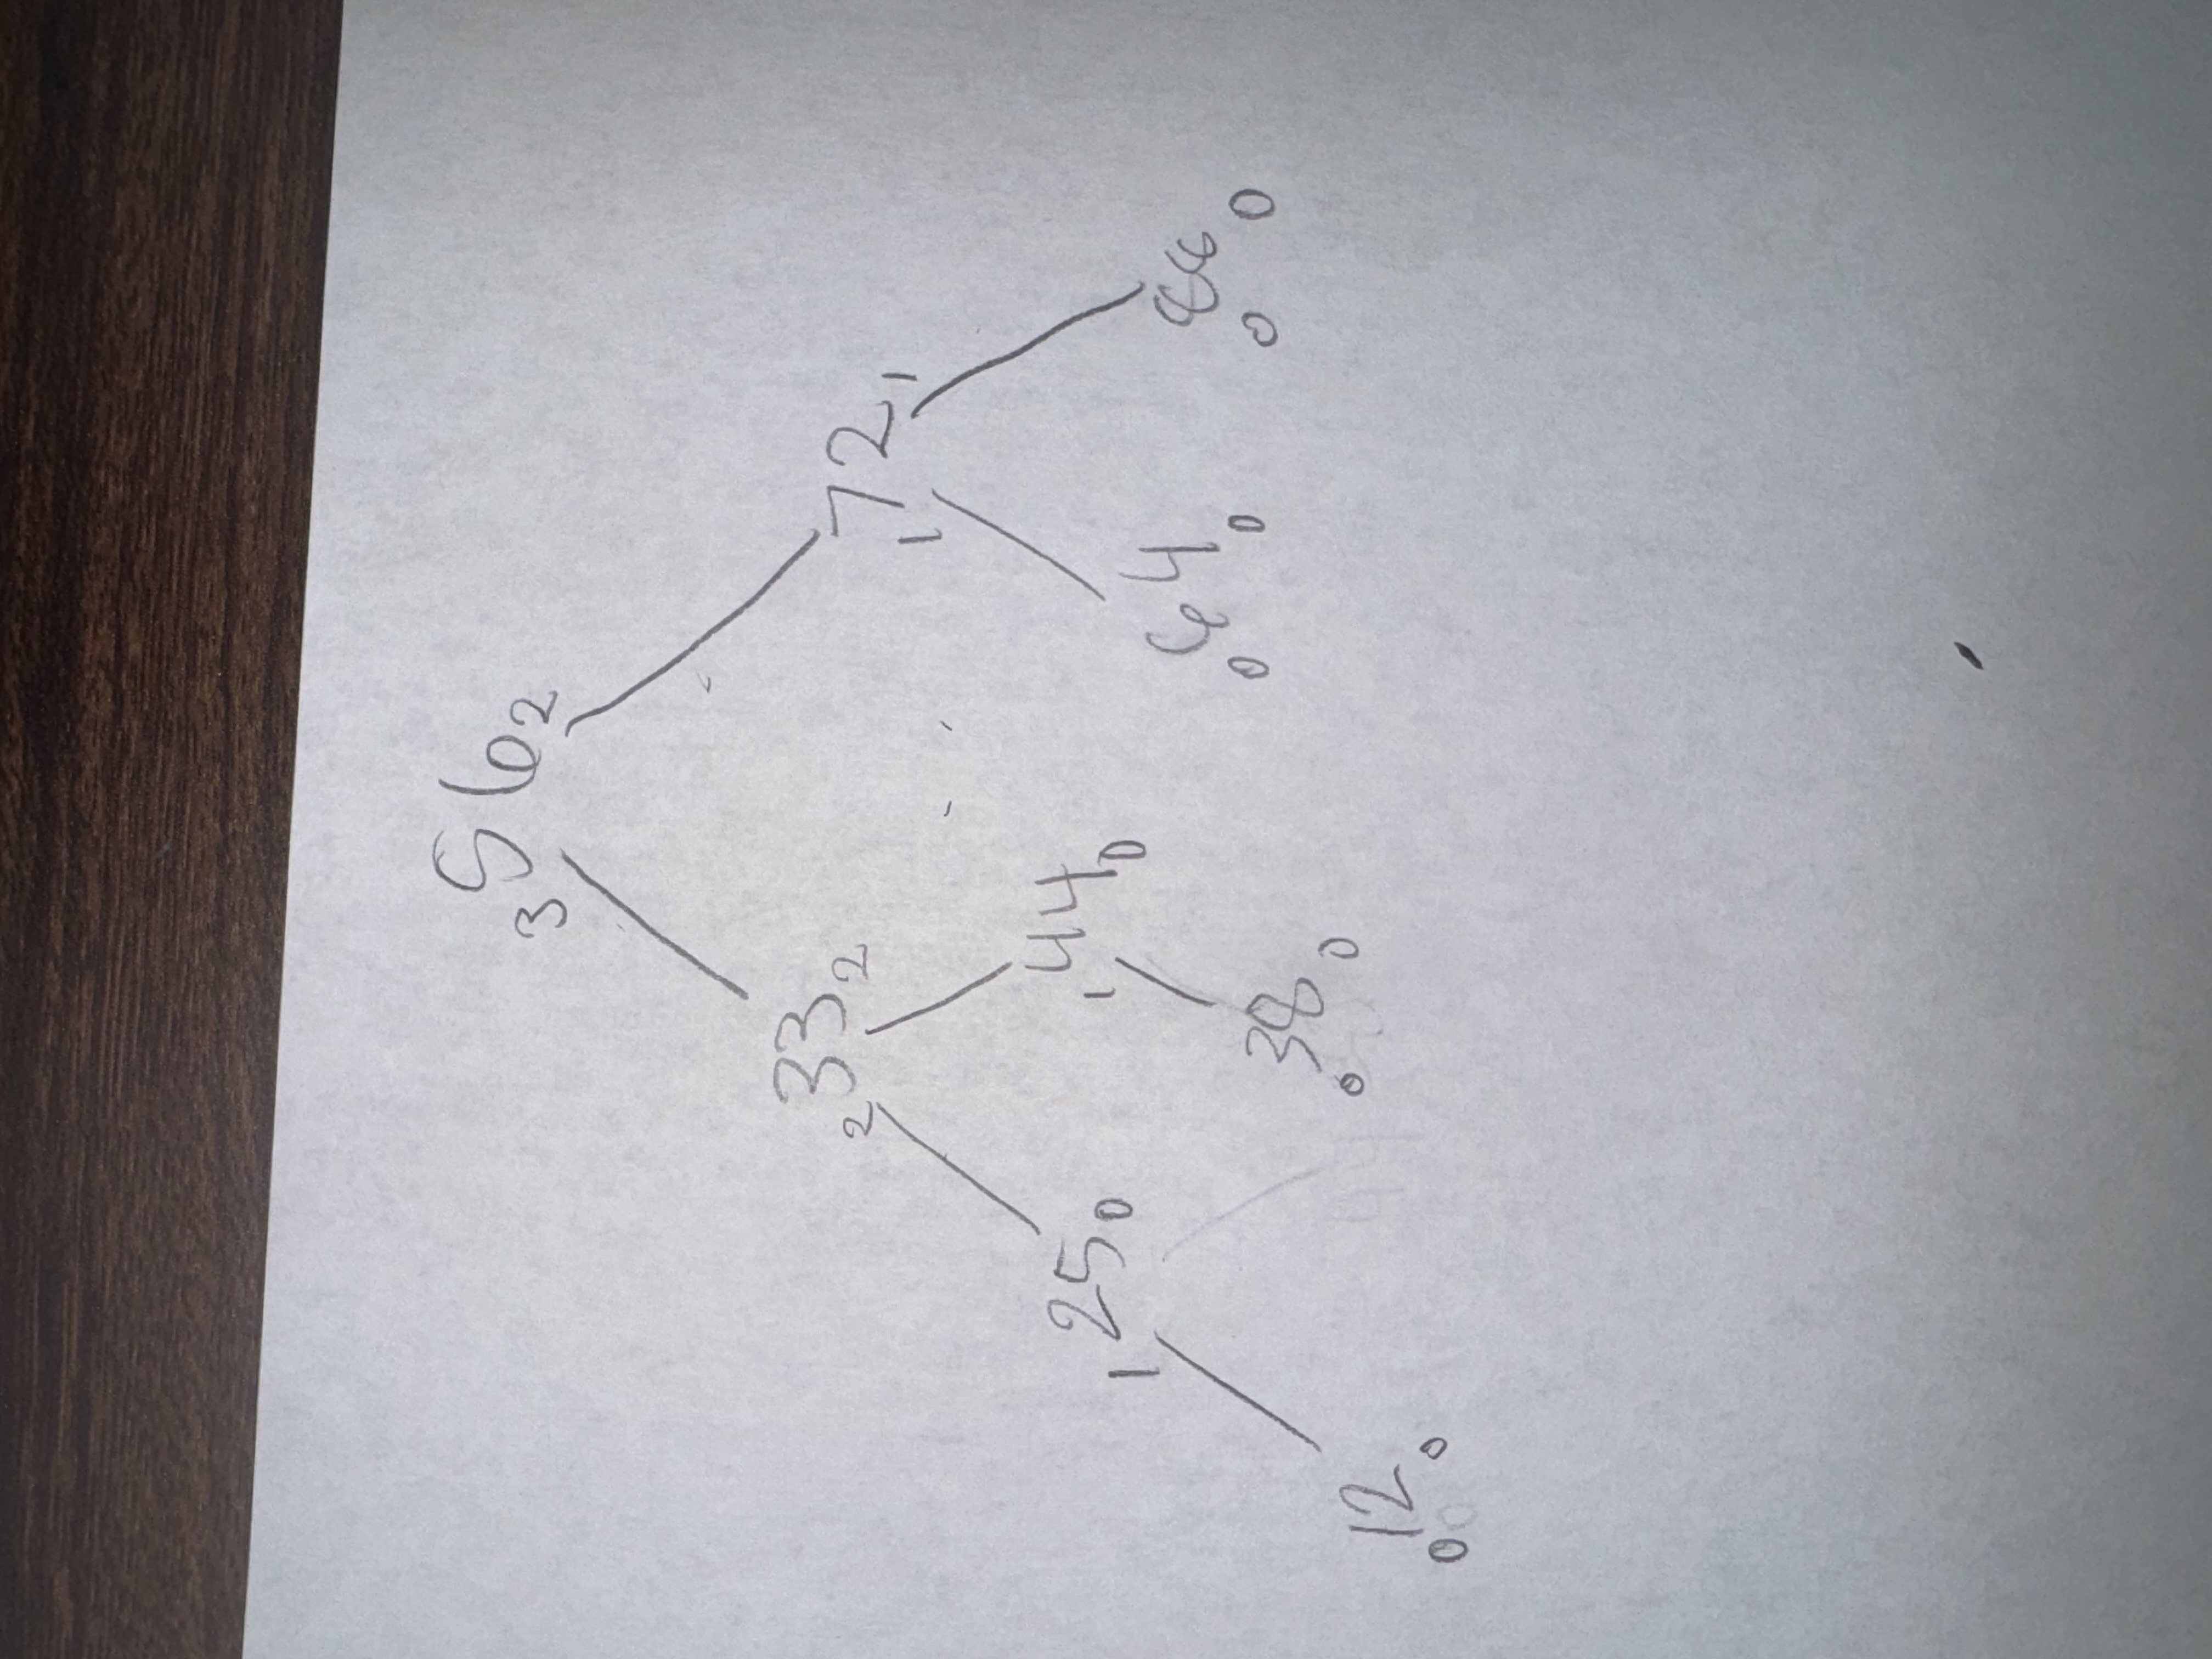 3 56 2
2 33 2
1 72 1
1 25 0
1 44 0
0 64 0
0 88 0
0 12 0
0 38 0